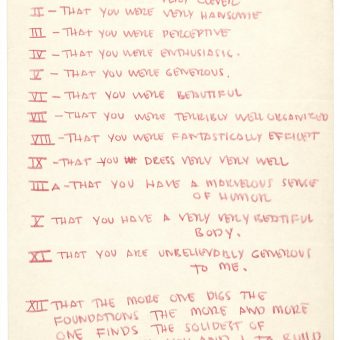 VERY CLEVER
II - THAT YOU WERE VERY HANSOME
III - THAT YOU WERE PERCEPTIVE
IV - THAT YOU WERE ENTHUSIASIC.
V - THAT YOU WERE GENEROUS.
VI - THAT YOU WERE BEAUTIFUL
VII - THAT YOU WERE TERRIBLY WELL ORGANIZED
VIII - THAT YOU WERE FANTASTICALLY EFFICIENT
IX - THAT YOU DRESS VERY VERY WELL
III A - THAT YOU HAVE A MARVELOUS SENSE
OF HUMOR
X THAT YOU HAVE A VERY VERY BEAUTIFUL
BODY.
XI THAT YOU ARE UNBELIEVABLY GENEROUS
TO ME.
XII THAT THE MORE ONE DIGS THE
FOUNDATIONS THE MORE AND MORE
ONE FINDS THE SOLIDEST OF
YOU AND I TO BUILD